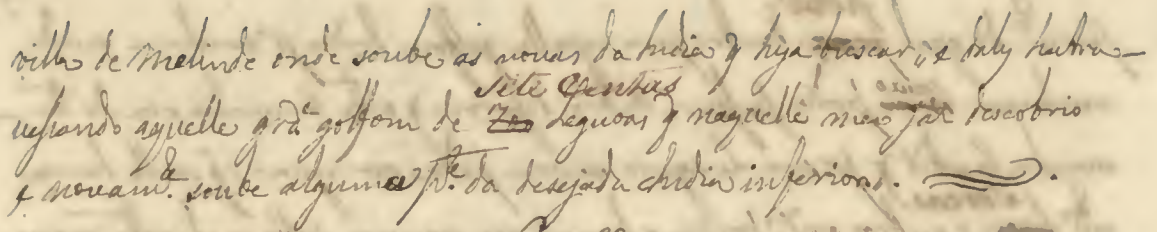 villa de Melinde onde soube as novas da India q̃ hya buscar, e daly hatra-
sete centas
vesando aquelle grãᵈᵉ golfom de 700 Leguoas q̃ naquelle descobrio
e novamᵗᵉ soube alguma pᵗᵉ da desejada India inferior.